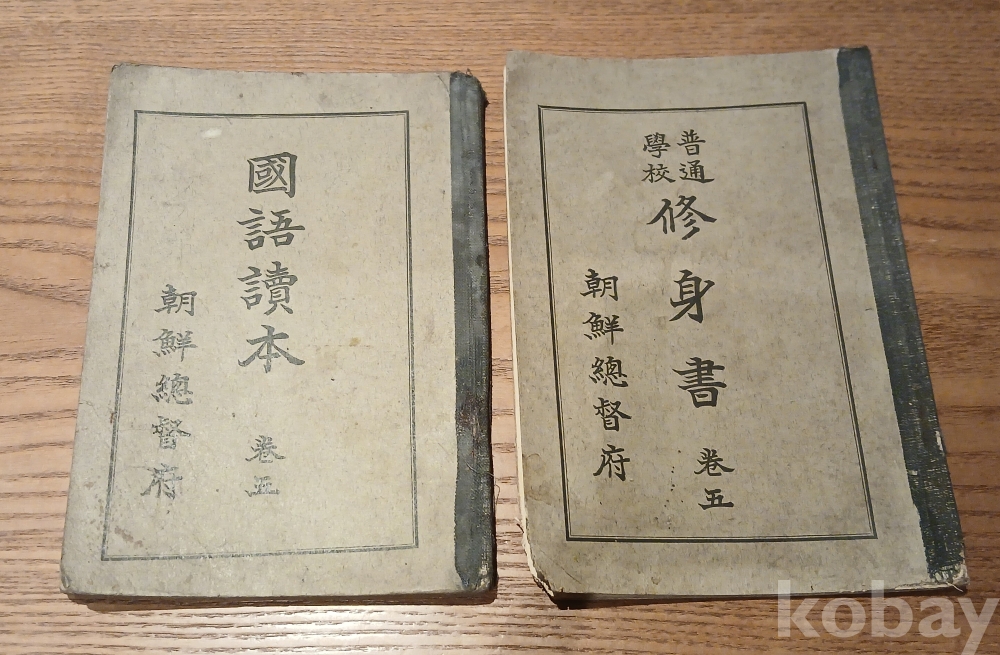 國語讀本
卷五
朝鮮總督府
普通
學校
修身書
卷五
朝鮮總督府
kobay